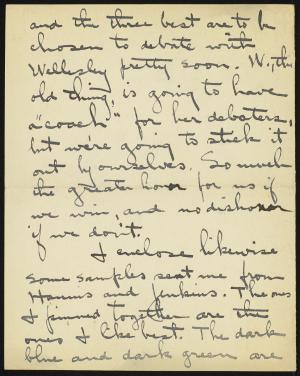 and the three best are to be
chosen to debate with
Wellesley pretty soon. W., the
old thing, is going to have
a "coach" for her debaters,
but we're going to stick it
out by ourselves. So much
the greater honor for us if
we win, and no dishonor
if we don't.
I enclose likewise
some samples sent me from
Hamms and Jenkins. The ones
I pinned together are the
ones I like best. The dark
blue and dark green are